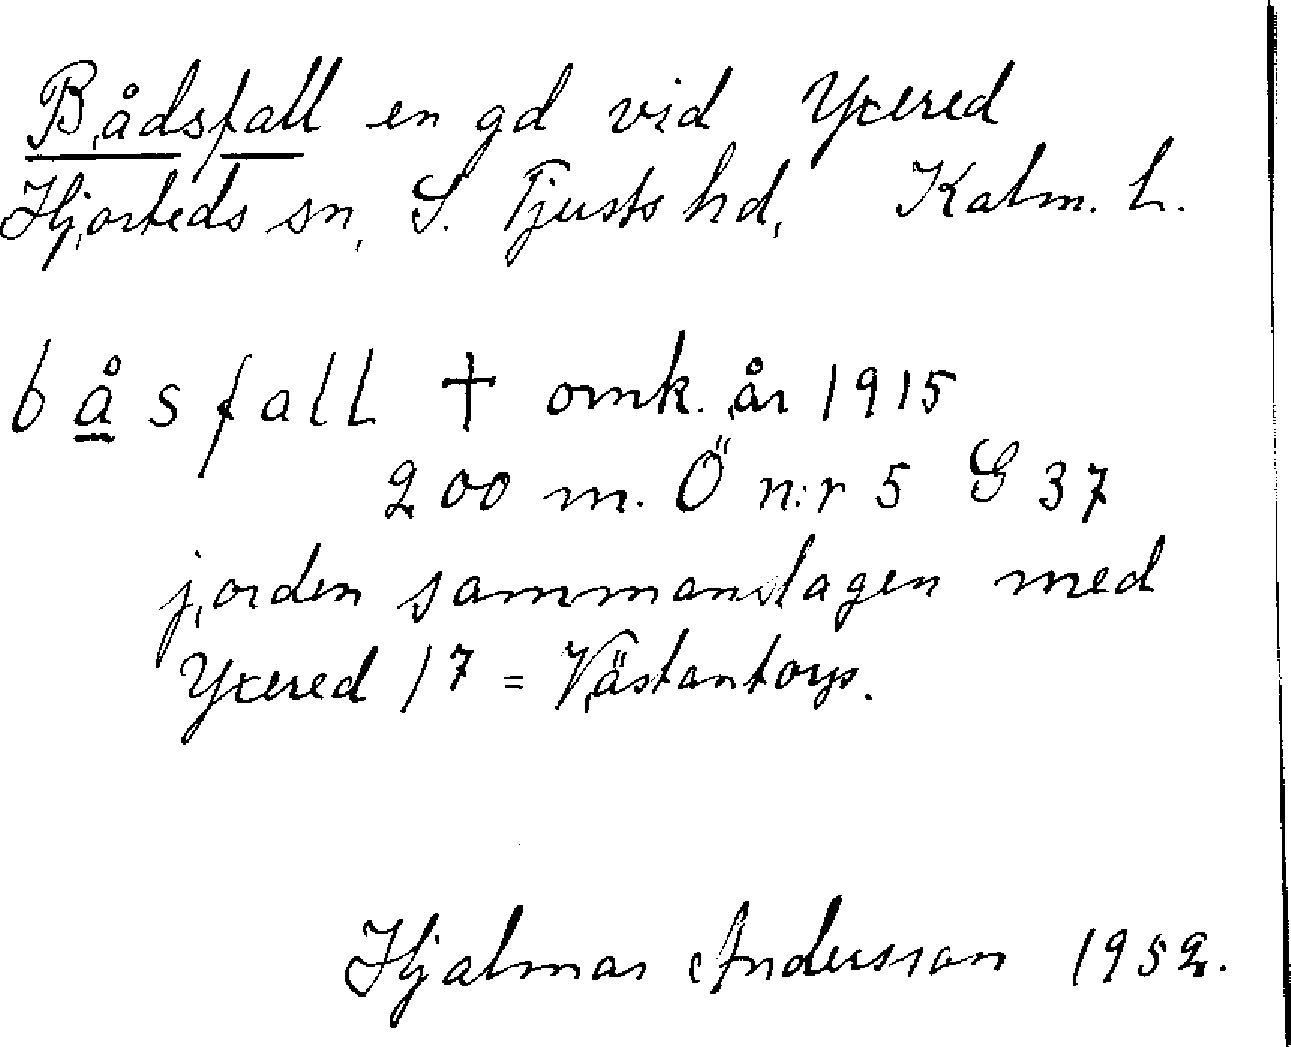 Bådsfall en gd vid Yxered
Hjorteds sn, S. Tjusts hd, Kalm. L.
båsfall † omk. år 1915
200 m. Ö n:r 5 G 37
jorden sammanslagen med
Yxered 17 = Västantorp.
Hjalmar Andersson 1952.